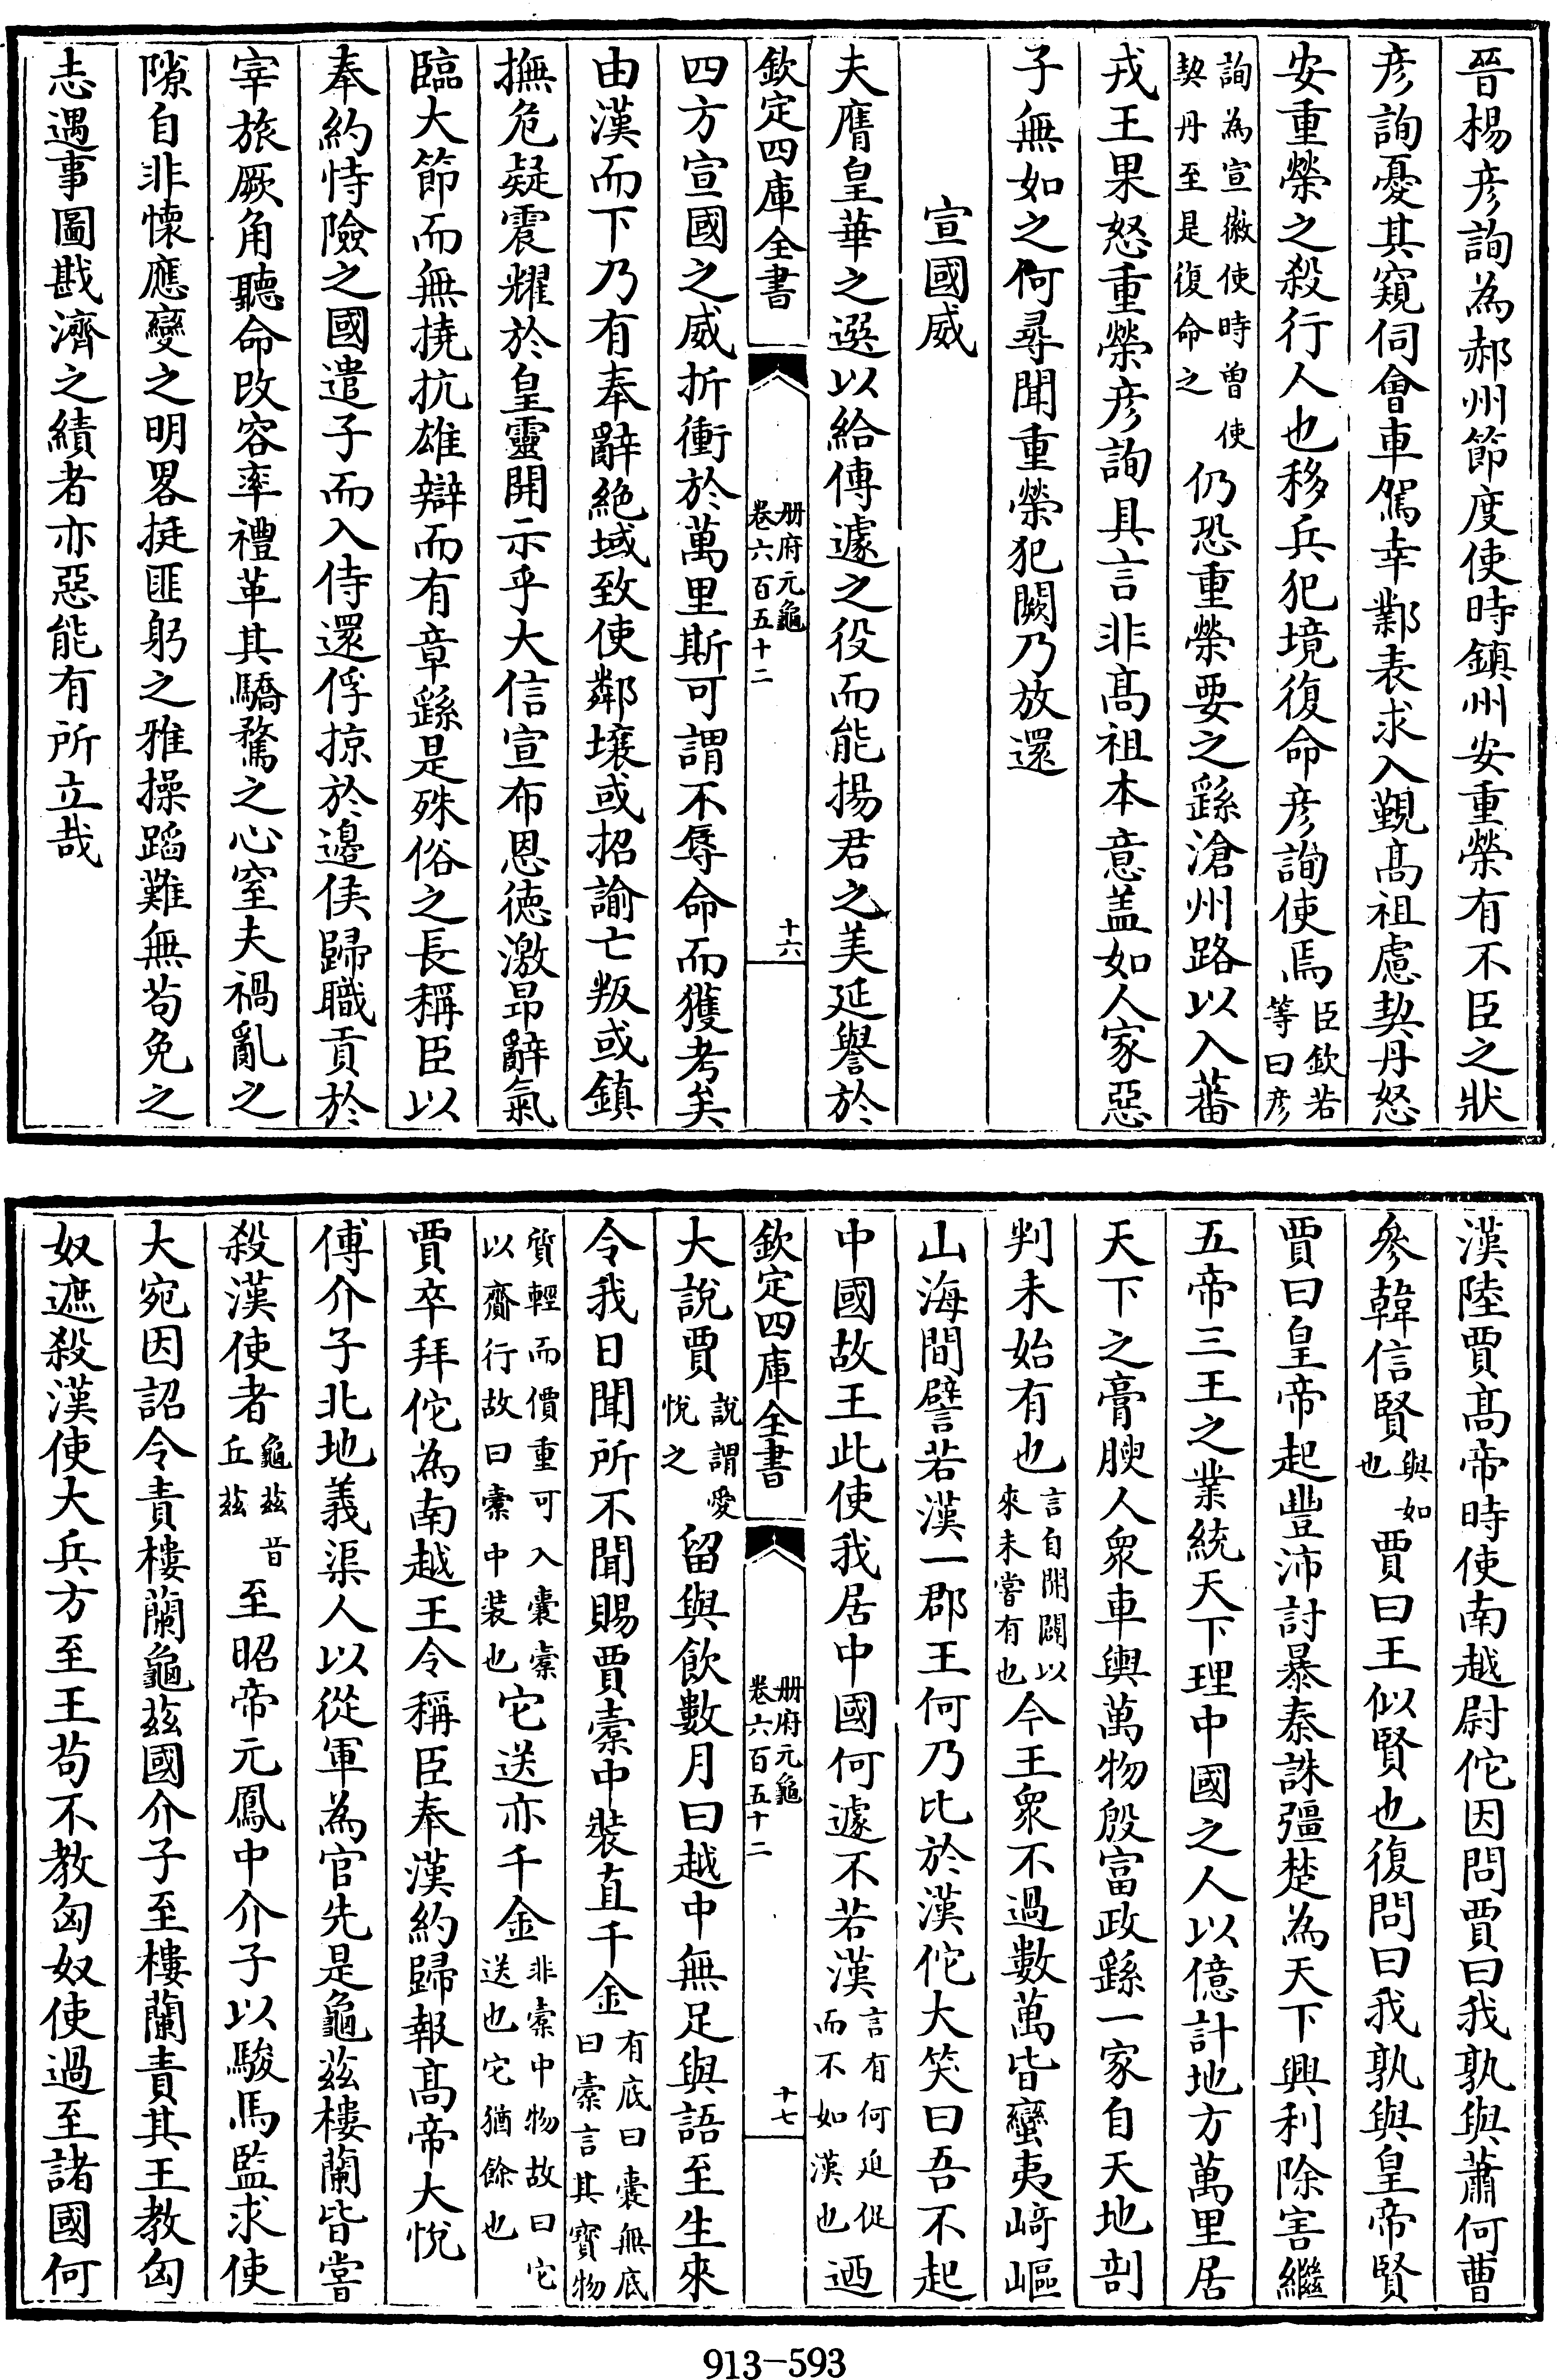 晉楊彦詢為郝州節度使時鎮州安重榮有不臣之狀
彦詢憂其窺伺會車駕幸鄴表求入覲髙祖慮契丹怒
安重榮之殺行人也移兵犯境復命彦詢使焉臣欽若等曰彦
詢為宣徽使時曽使契丹至是復命之仍恐重榮要之繇滄州路以入蕃
戎王果怒重榮彦詢具言非髙祖本意盖如人家惡
子無如之何尋聞重榮犯闕乃放還
宣國威
夫膺皇華之選以給傳遽之役而能揚君之美延譽於
欽定四庫全書
册府元龜
卷六百五十二
十六
四方宣國之威折衝於萬里斯可謂不辱命而獲考矣
由漢而下乃有奉辭絶域致使鄰壤或招諭亡叛或鎮
撫危疑震耀於皇靈開示乎大信宣布恩徳激昂辭氣
臨大節而無撓抗雄辯而有章繇是殊俗之長稱臣以
奉約恃險之國遣子而入侍還俘掠於邉侯歸職貢於
宰旅厥角聽命改容率禮革其驕騖之心窒夫禍亂之
隙自非懐應變之明畧挺匪躬之雅操蹈難無茍免之
志遇事圖戡濟之績者亦惡能有所立哉
漢陸賈髙帝時使南越尉佗因問賈曰我孰與蕭何曹
參韓信賢與如也賈曰王似賢也復問曰我孰與皇帝賢
賈曰皇帝起豐沛討暴秦誅彊楚為天下興利除害繼
五帝三王之業統天下理中國中國之人以億計地方萬里居
天下之膏腴人衆車輿萬物殷富政繇一家自天地剖
判未始有也言自開闢以來未嘗有也今王衆不過數萬皆蠻夷崎嶇
山海間譬若漢一郡王何乃比於漢佗大笑曰吾不起
中國故王此使我居中國何遽不若漢言有何迫促而不如漢也迺
欽定四庫全書
册府元龜
卷六百五十二
十七
大說賈說謂愛悅之留與飲數月曰越中無足與語至生來
令我日聞所不聞賜賈橐中裝直千金有底曰囊無底曰橐言其寳物
質輕而價重可入囊橐以齎行故曰橐中装也它送亦千金非橐中物故曰它送也它猶餘也
賈卒拜佗為南越王令稱臣奉漢約歸報髙帝大悅
傅介子北地義渠人以從軍為官先是龜兹樓蘭皆嘗
殺漢使者龜兹音丘兹至昭帝元鳳中介子以駿馬監求使
大宛因詔令責樓蘭龜兹國介子至樓蘭責其王教匈
奴遮殺漢使大兵方至王茍不教匈奴使過至諸國何
913-593